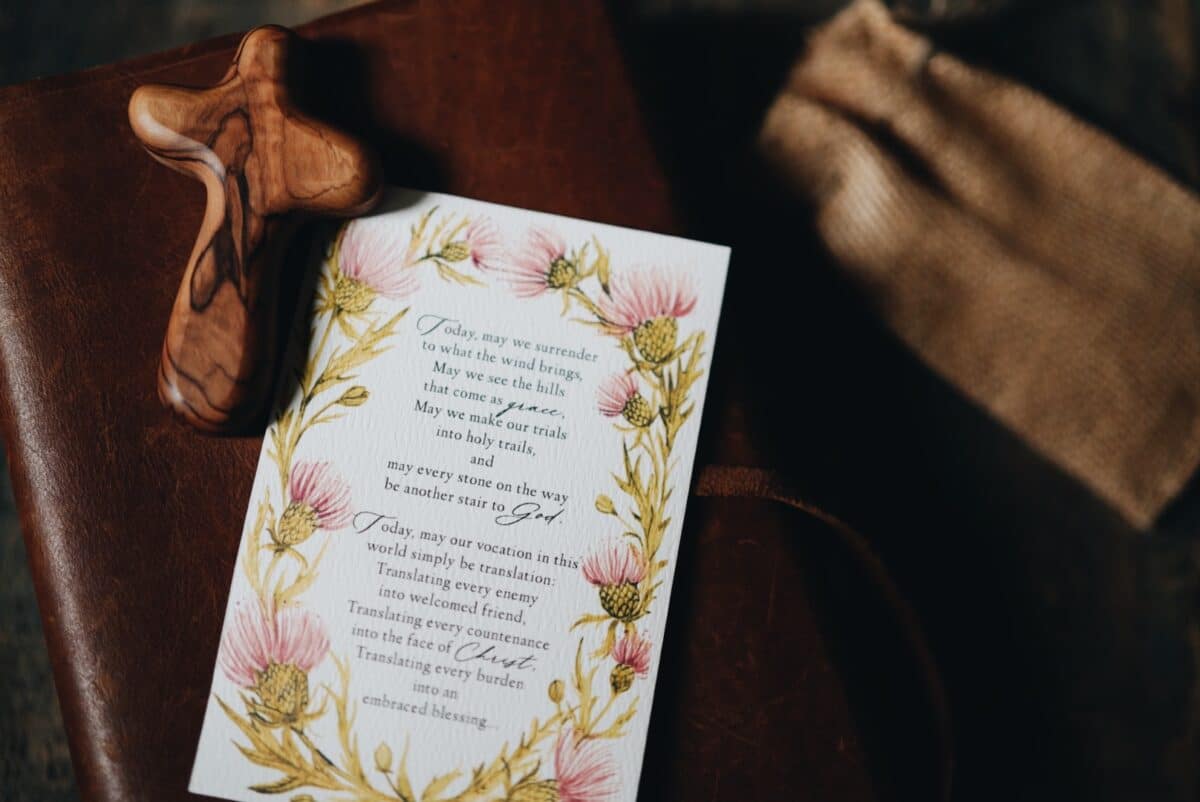 Today, may we surrender
to what the wind brings,
May we see the hills
that come as grace,
May we make our trials
into holy trails,
and
may every stone on the way
be another stair to God.
Today, may our vocation in this
world simply be translation:
Translating every enemy
into welcomed friend,
Translating every countenance
into the face of Christ,
Translating every burden
into an
embraced blessing...